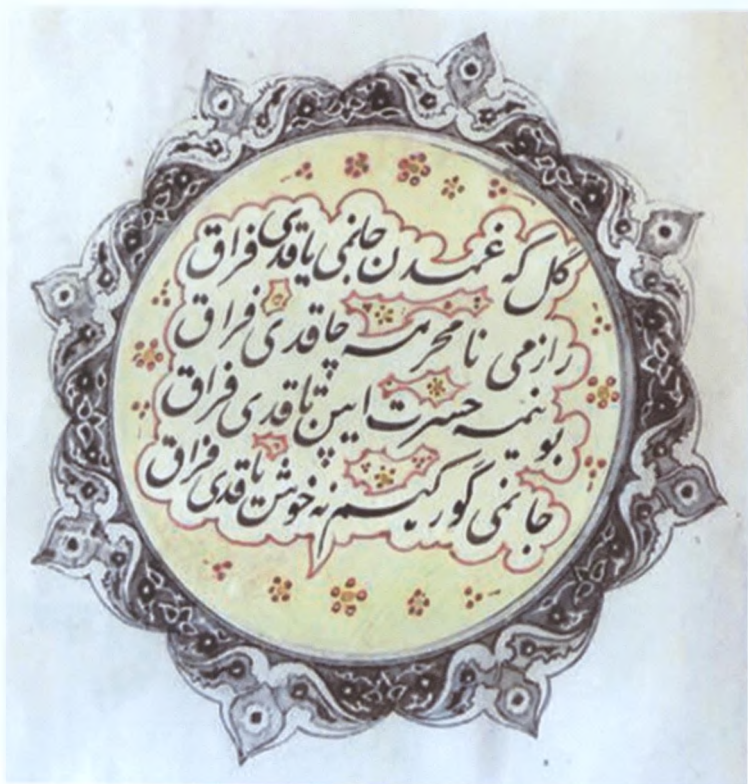 گل گه غمدن جانمی یاقدی فراق
رازمی نامحرمه چاقدی فراق
بوینمه حسرت ایپن تاقدی فراق
جانمی گور کیم نه خوش یاقدی فراق